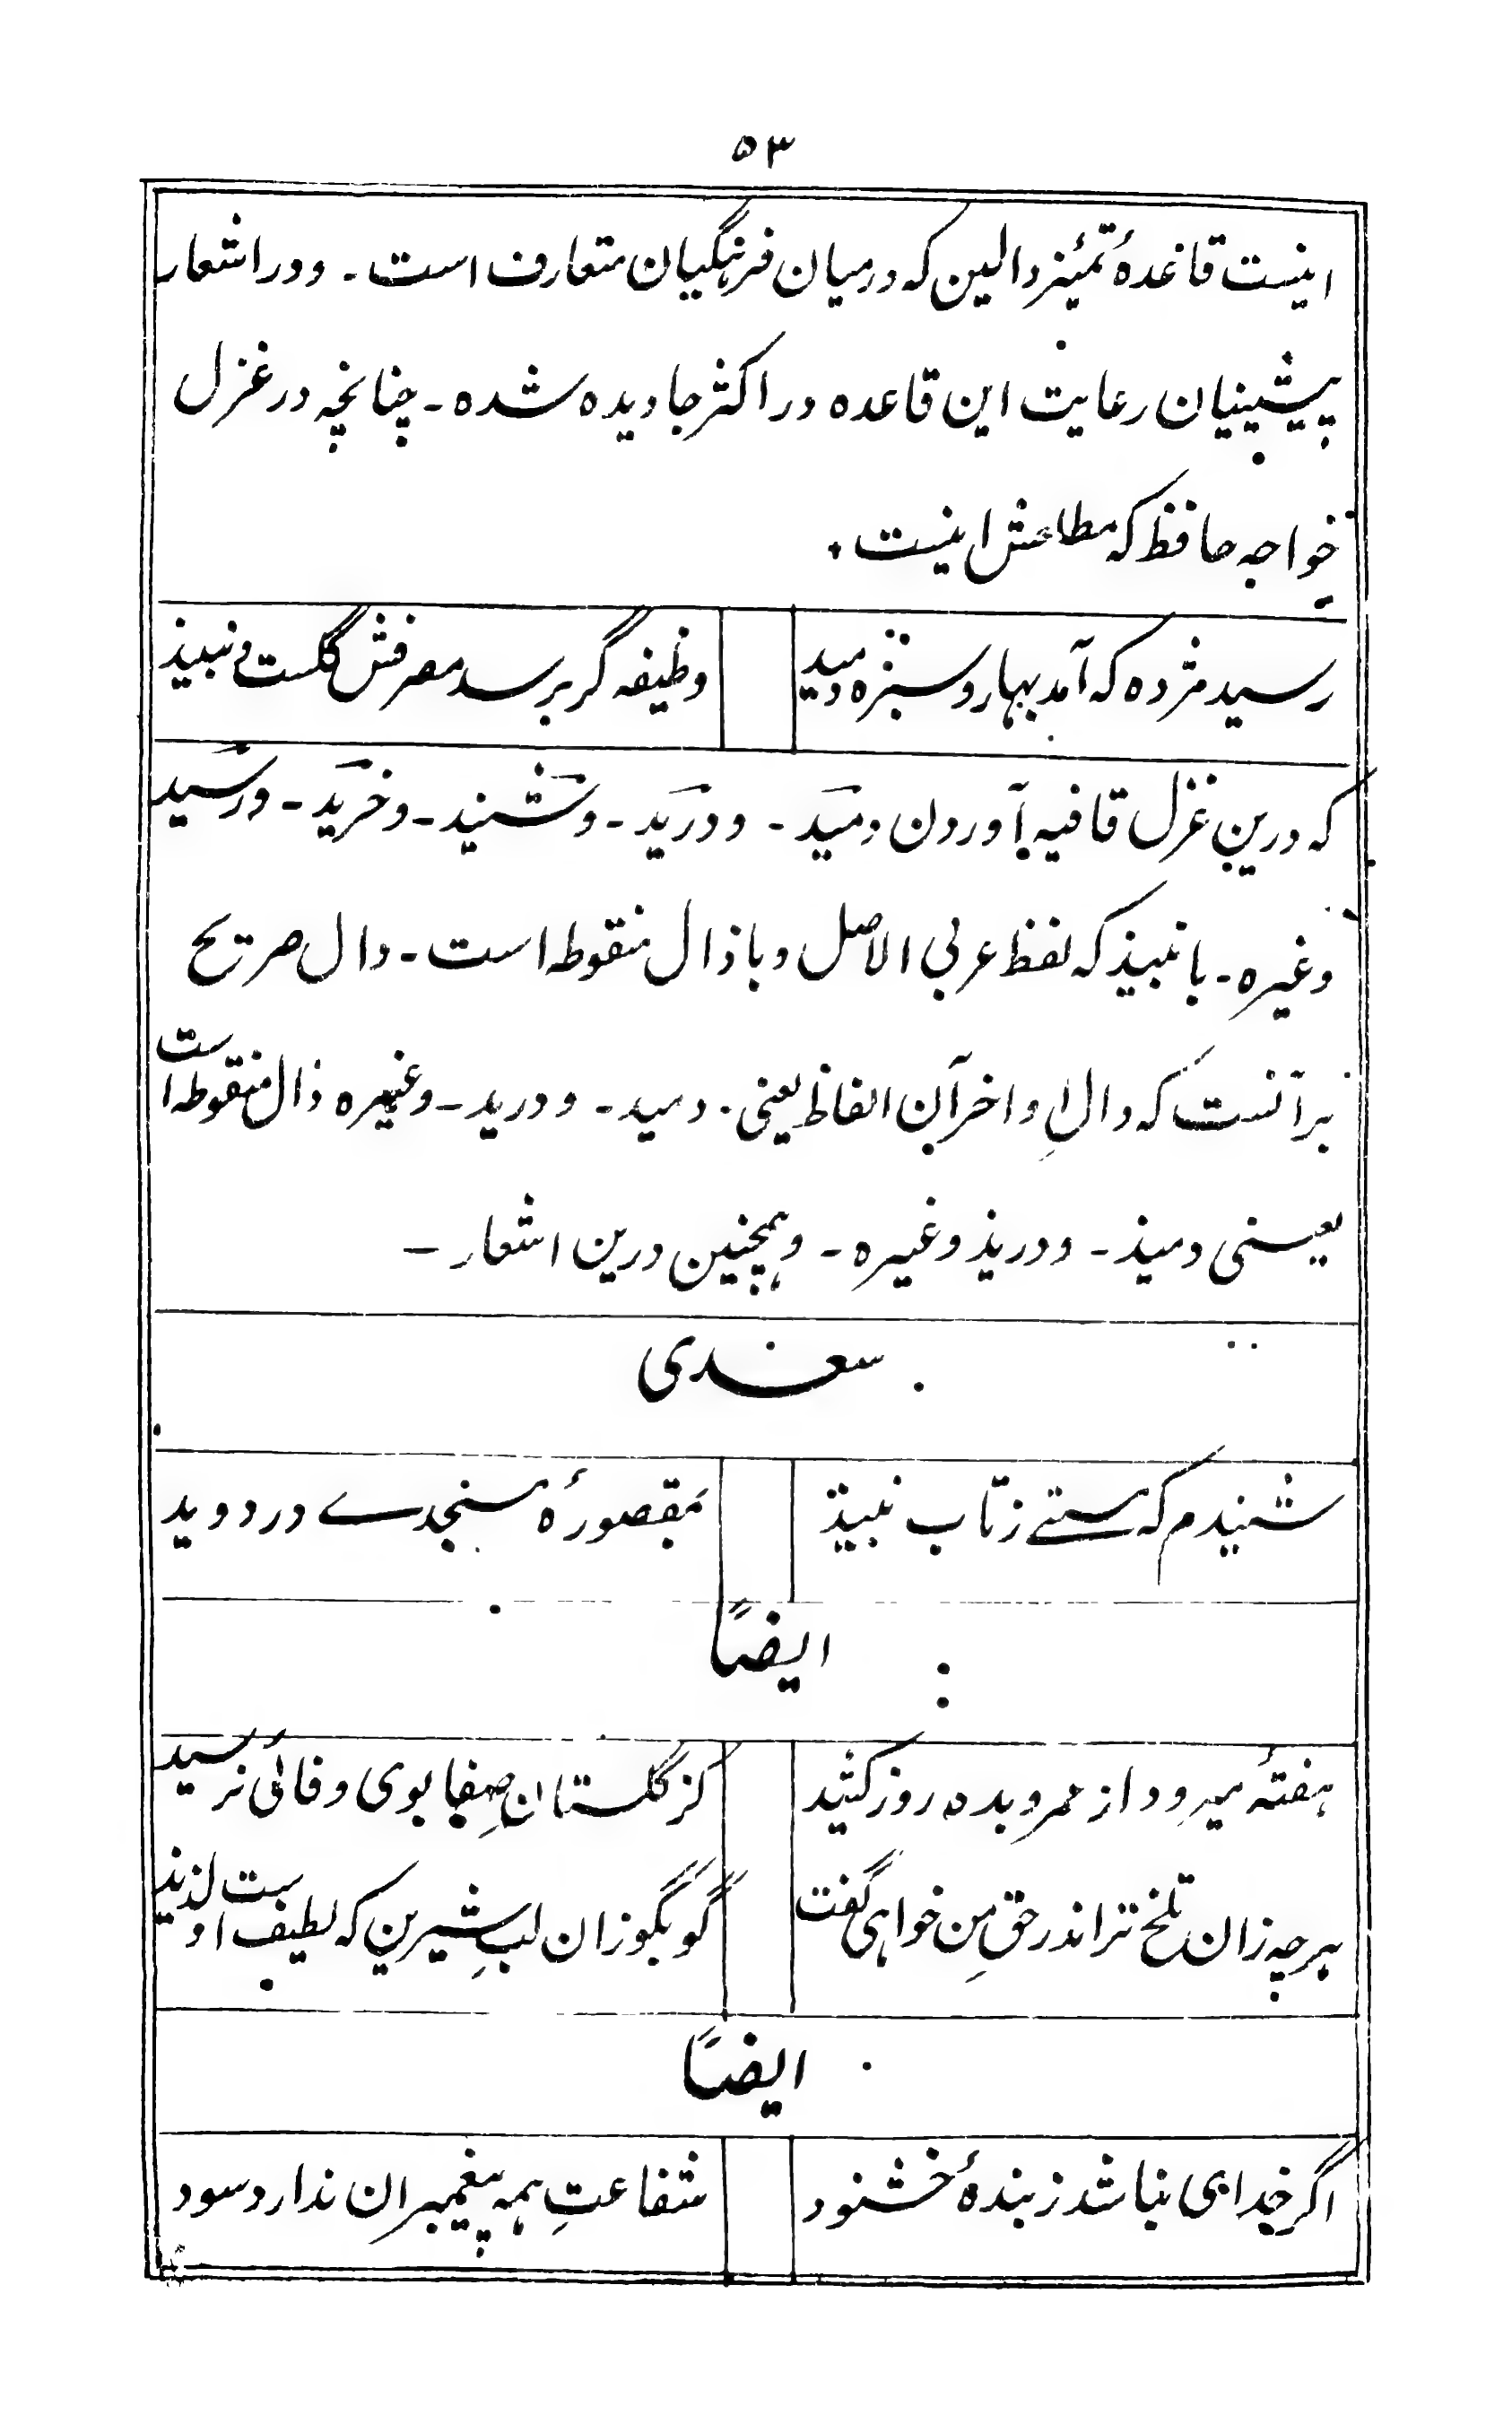 ۵۳
اینست قاعدهٔ تمئیز دالین که درمیان فرهنگیان متعارف است - و در اشعار
پیشینیان رعایت این قاعده در اکثر جا دیده شده - چنانچه در غزل
خواجه حافظ که مطلعش اینست
رسید مژده که آمد بهار و سبزه دمید
وظیفه گر برسد مصرفش گلست و نبیذ
که درین غزل قافیه آوردن دمَید - و درَید - و شنَید - و خرَید - و رسَید
وغیره - با نبیذ که لفظ عربی الاصل و با ذال منقوطه است - دال صریح
برآنست که دالِ اواخر آن الفاظ یعنی - دمید - و درید - وغیره ذال منقوطه است
یعنی دمیذ - و دریذ وغیره - و همچنین درین اشعار -
سعدی
شنیدم که مستے ز تاب نبیذ
بمقصورهٔ مسجدے در دوید
ایضاً
هفتهٔ میرود از عمر و بده روز کشید
کز گلستانِ صفا بوی وفائی نرسید
هرچه زان تلخ تر اندر حقِ من خواهی گفت
گو بگو زان لبِ شیرین که لطیف است و لذیذ
ایضاً
اگر خدای نباشد ز بندهٔ خشنود
شفاعتِ همه پیغمبران ندارد سود